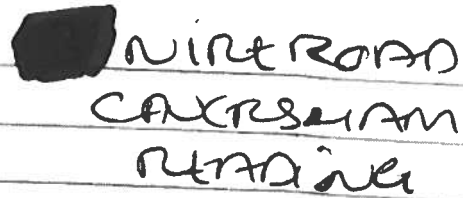 NIRE ROAD
CAVERSHAM
READING